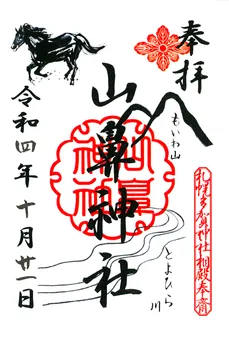 奉拝
もいわ山
山鼻神社
とよひら川
札幌多賀神社相殿奉斎
令和四年十月廿一日